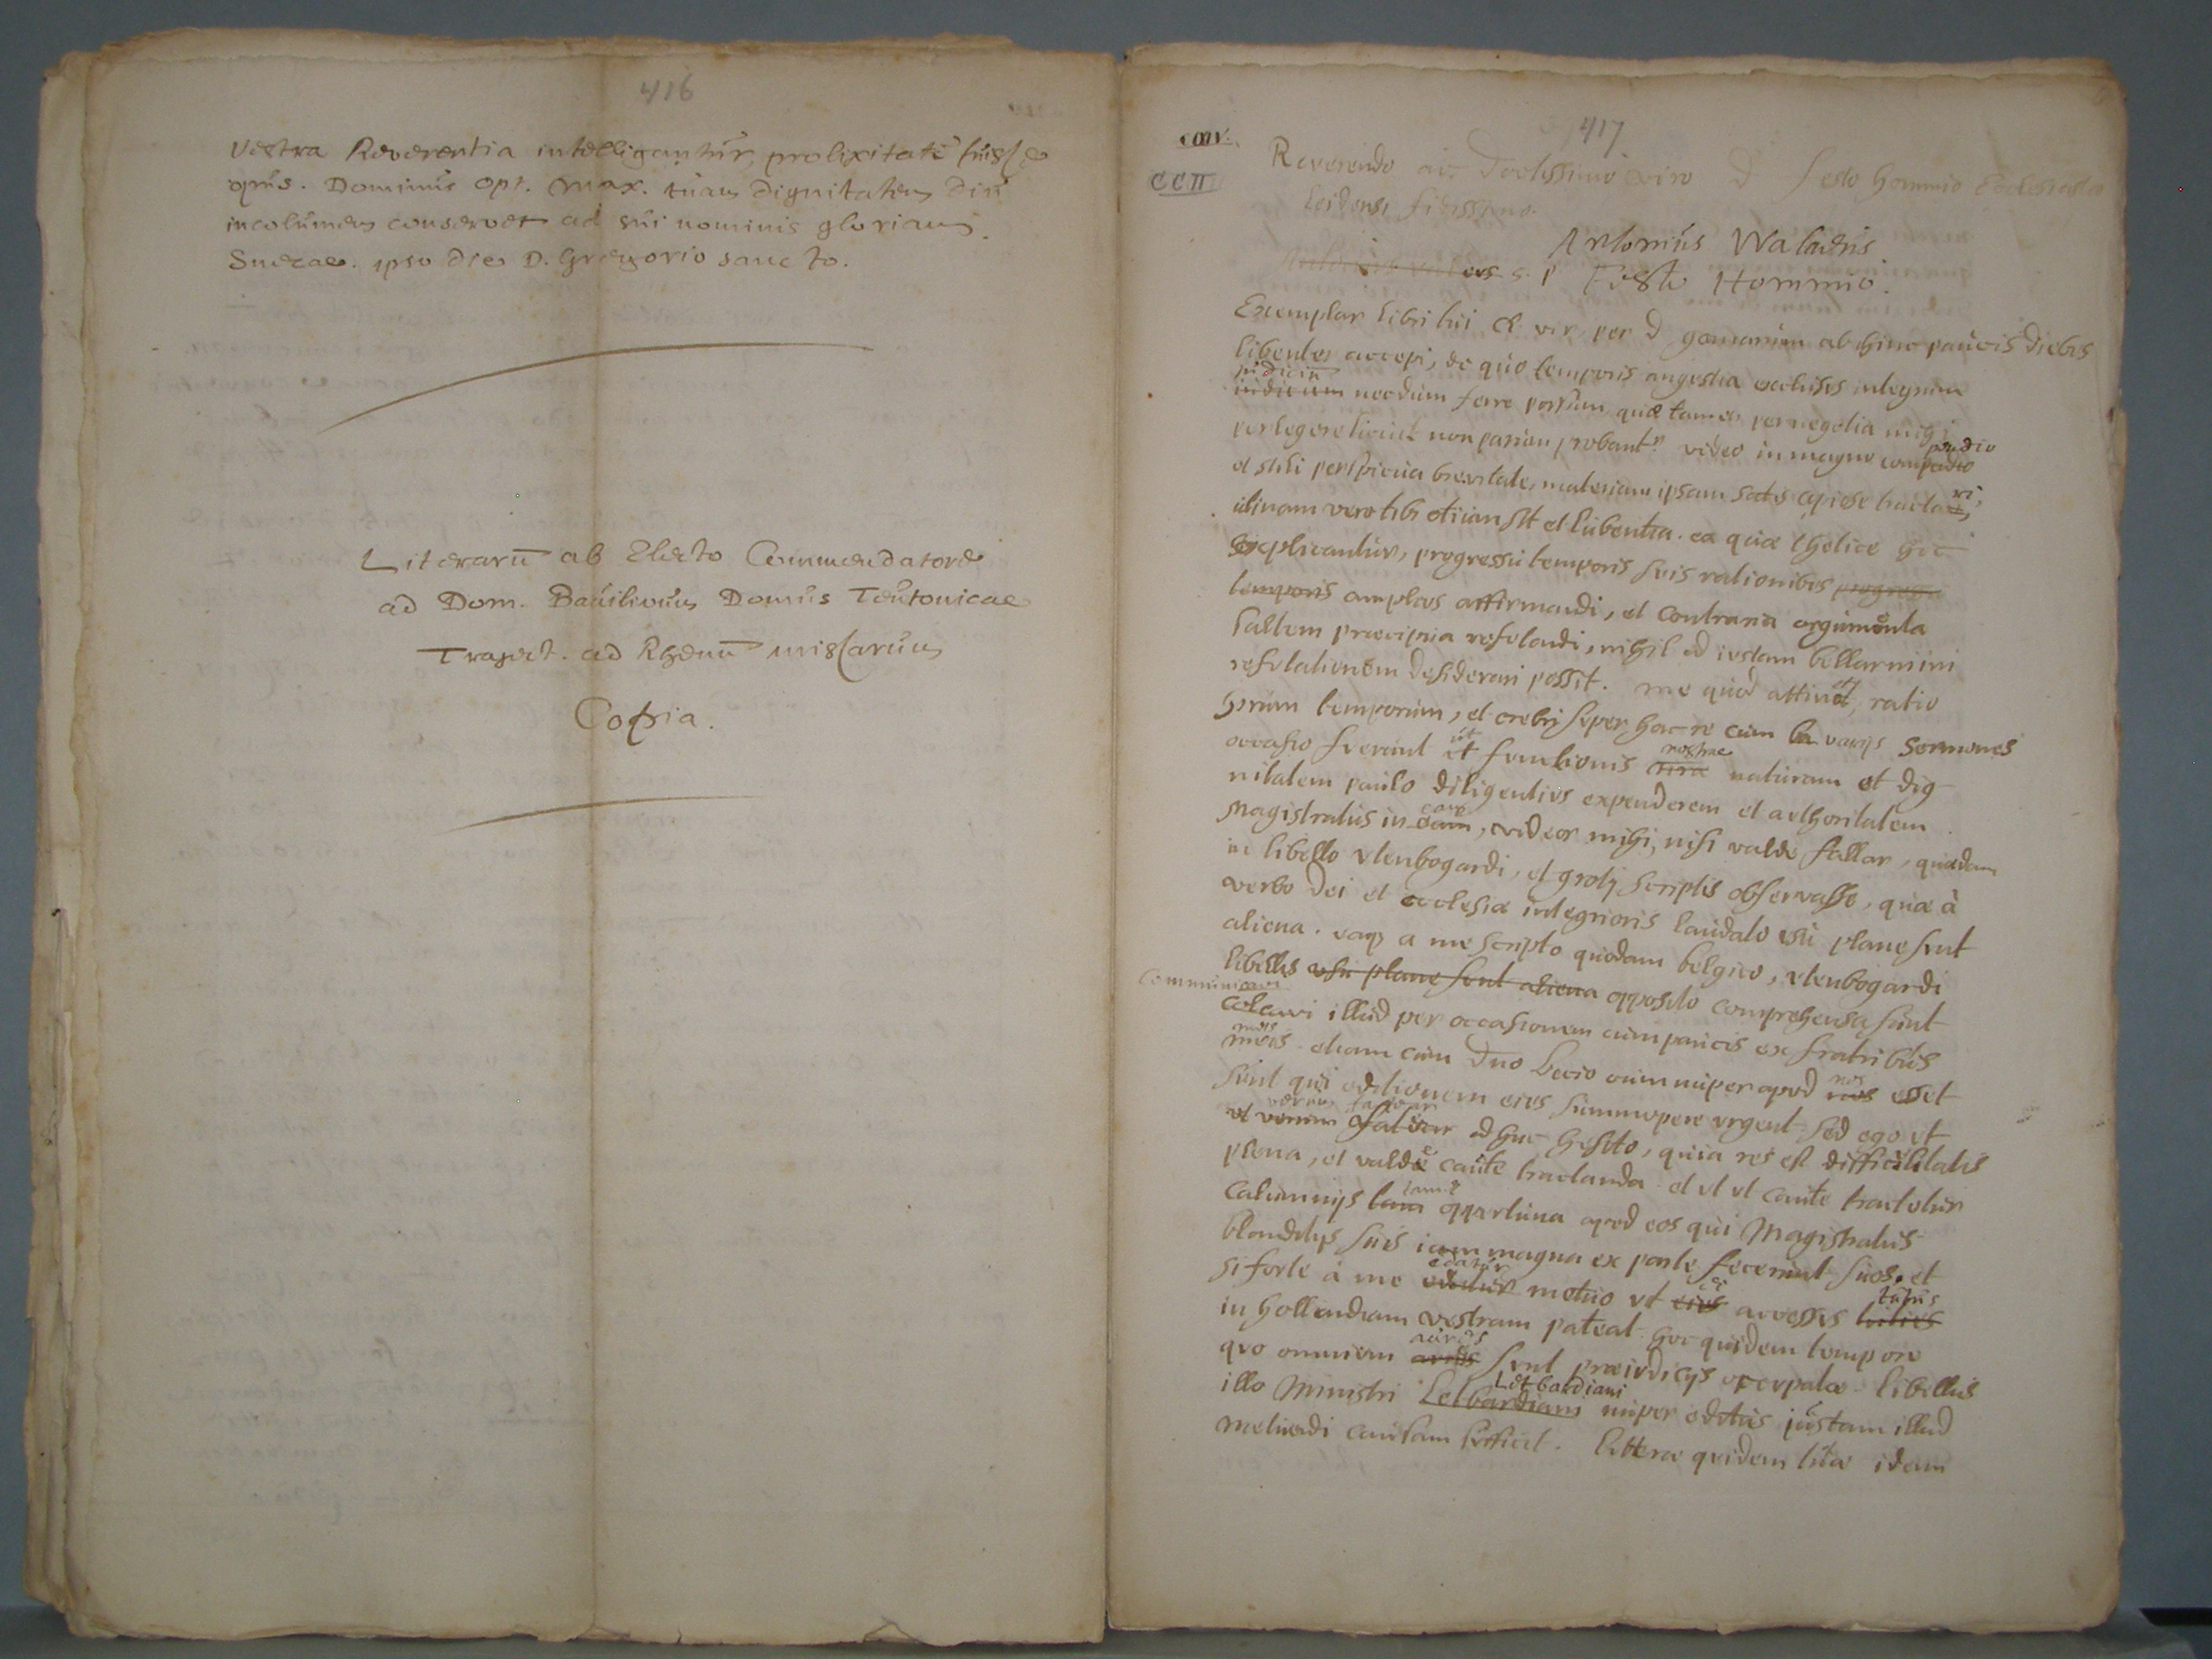 416
Vestra Reverentia intelligantur, prolixitatē fuisse
opus. Dominus Opt. Max. tuam dignitatem diu
incolumem conservet ad sui nominis gloriam.
ipso die D. Gregorio sancto.
Literarū ab Electo Commendatore
ad Dom. Domus Teutonicae
Traject. ad Rhenū missarum
Copia.
417
CCII
Reverendo ac Doctissimo viro D Festo Hommio Ecclesiastae
Leidensi fidissimo.
Antonius Walaeus
s. p Festo Hommio.
Exemplar libri tui Cl. vir per D gomarum ab hinc paucis diebus
libenter accepi, de quo temporis angustia exclusus integrum
iudiciū
iudicium necdum ferre possum, quae tamen per negotia mihi
perlegere licuit non parum probantr. video in magno compendio
pendio
et stili perspicua brevitate, materiam ipsam satis copiose tractari,
utinam vero tibi otium sit et lubentia. ea quae thetice hic
explicantur, progressu temporis suis rationibus progressu
temporis amplius affirmandi, et contraria argumenta
saltem praecipua refutandi, nihil ad iustam bellarmini
refutationem desiderari possit. me quod attinet, ratio
horum temporum, et crebri super hac re cum varijs sermones
occasio fuerunt ut functionis nostrae naturam et dig
nitatem paulo diligentius expenderem et authoritatem
Magistratus in eam, videor mihi, nisi valde fallar, quaedam
in libello utenbogardi, et grotij scriptis observasse, quae à
verbo Dei et ecclesiae integrioris laudato usu plane sunt
aliena. eaq a me scripto quodam belgico, utenbogardi
libellis usu plane sunt aliena opposito comprehensa sunt
communicavi
illud per occasionem cum paucis ex fratribus
meis etiam cum Dno Becio cum nuper apud nos esset
sunt qui editionem eius summopere urgent sed ego ut
verum fatear
ut verum fatear adhuc hesito, quia res est difficultatis
plena, et valdè caute tractanda et ut ut caute tractetur
calumnijs tamē opportuna apud eos qui Magistratus
blanditijs suis iam magna ex parte fecerunt suos. et
si forte à me edatur metuo ut ei accessus tutus
in hollandiam vestram pateat hoc quidem tempore
quo omnium aures sunt praeiudicijs occupatae libellus
Letbardiani
illo Ministri Letbardiani nuper editus iustam illud
metuendi causam suffficit. litterae quidem tuae idem